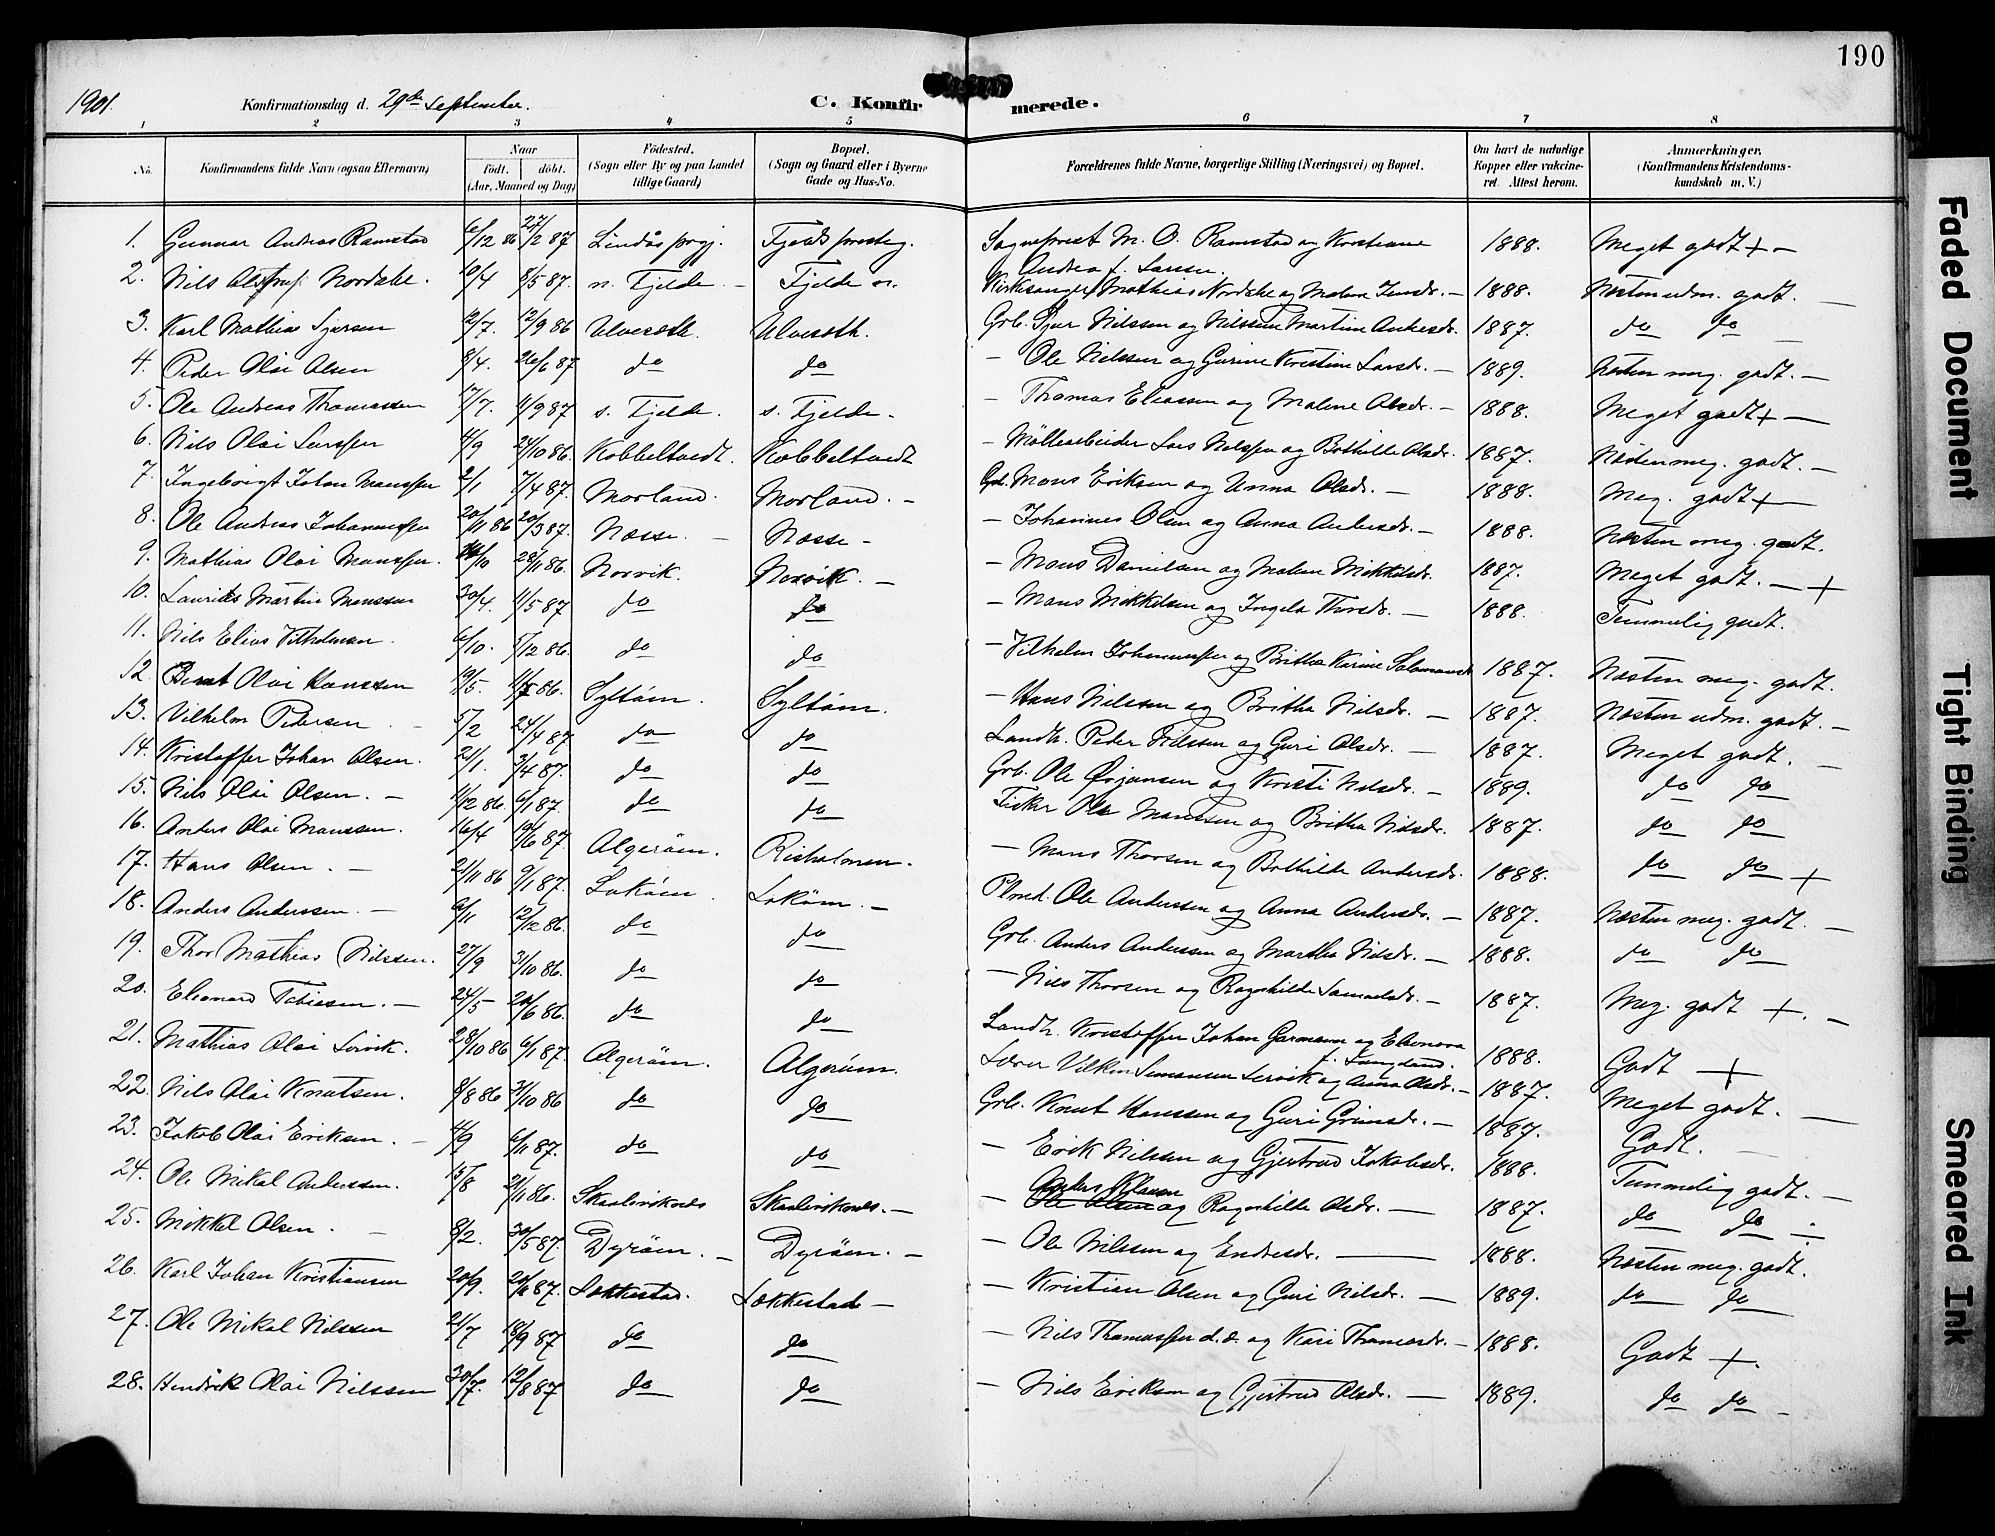 190
1901. Konfirmationsdag d. 29de September. C. Konfirmerede.
1 2 3 4 5 6 7 8
No. Konfirmandens fulde Navn (ogsaa Efternavn) Naar født. døbt. (Aar, Maaned og Dag) Fødested. (Sogn eller By og paa Landet tillige Gaard) Bopæl. (Sogn og Gaard eller i Byerne Gade og Hus-No. Forældrenes fulde Navne, borgerlige Stilling (Næringsvei) og Bopæl. Om havt de naturlige Kopper eller vakcineret. Attest herom. Anmærkninger. (Konfirmandens Kristendomskundskab m. V.)
1. Gunnar Andreas Ramstad 6/12 86 27/2 87 Lindås prgj. Fjelds presteg. Sogneprest M. O. Ramstad og Kristiane Andrea f. Larsen. 1888. Meget godt + —
2. Nils Nordahl. 10/4 8/5 87 n. Fjelde — Fjelde n. Kirkesanger Mathias Nordahl og Malene Jensdr. — 1888. Næsten udm. godt. —
3. Karl Mathias Sjursen 2/7. 12/9 86 Ulvesøth. Ulvesøth. Grb. Sjur Nilssen og Martine Andersdr. 1887. do do —
4. Peder Olai Olsen 8/4. 26/6 87 do do — Ole Nilssen og Gurine Kristine Larsdr. — 1889. Næsten meg. godt. —
5. Ole Andreas Thomassen 17/7. 4/9 87 s. Fjelde. s. Fjelde. — Thomas Eliassen og Malene Olsdr. — 1888. Meget godt + —
6. Nils Olai Larssen 4/9 24/10 86. Kobbeltvedt. Kobbeltvedt — Møllearbeider Lars Nilssen og Bothilde Olsdr. 1887. Næsten meg. godt. —
7. Ingebrigt Johan Manssen 2/1 7/4 87. Morland. Morland. — Grb. Mons Eriksen og Anna Olsdr. — 1888. Meg. godt + —
8. Ole Andreas Johannessen 20/11 86 20/3 87. Næsse. — Næsse — — Johannes Olsen og Anna Andersdr. — 1888. Næsten meg. godt.
9. Mathias Olai Monssen. 14/10 28/11 86. Norvik. Norvik. — — Mons Danielsen og Malene Mikkelsdr. 1887. Meget godt. — +
10. Laurits Martin Monssen 30/4. 11/5 87 do do — Mons Mikkelsen og Ingela Thorsdr. — 1888. Temmelig godt.
11. Nils Elias Vilhelmsen. 6/10. 5/12 86. do do — Vilhelm Johannessen og Britha Karine Salamonsdr 1887. Næsten meg. godt.
12. Bernt Olai Hanssen 19/5. 86. Syltøm. Syltøm. — Hans Nilssen og Britha Nilsdr. — 1887. Næsten udm. godt. —
13. Vilhelm Pedersen. — 5/2 24/4 87 do do Landh. Peder Nilssen og Guri Olsdr. — 1887. Meget godt. —
14. Kristoffer Johan Olsen. 21/1. 3/4 87. do do Grb. Ole Ørjansen og Kristi Nilsdr. — 1889. do do
15. Nils Olai Olsen. — 4/12 86. 6/1 87. do do Fisker Ole Monssen og Britha Nilsdr. 1887. do do
16. Anders Olai Monssen. 16/4 19/6 87. Algerøm. Risholmen. — Mons Thorsen og Bothilde Andersdr. 1888. do do +
17. Hans Olsen. — 21/11 86 9/1 87. Lokøm. Lokøm. — Plmd. Ole Anderssen og Anna Andersdr. — 1887. Næsten meg. godt. —
18. Anders Anderssen. — 6/11 12/12 86. do do Grb. Anders Anderssen og Martha Nilsdr. — 1888. do do
19. Thor Mathias Nilssen. 27/9 31/10 86. do do — Nils Thorsen og Ragnhilde Samuelsdr. — 1887. Meg. godt + . —
20. Eleonard Tobiassen. — 24/5 20/6 86. do do Landh. Kristoffer Johan Garmann og Eleonora f. 1888. Godt +
21. Mathias Olai Leirvik. 28/10 86 6/1 87. Algerøm. Algerøm. Lærer Vilken Simonsen Leirvik og Anna Olsdr. — 1887. Meget godt. —
22. Nils Olai Knutsen. 8/8 86 31/10 86 do do Grb. Knut Hanssen og Guri Grimsdr. — 1887. Godt. —
23. Jakob Olai Eriksen. — 4/9 6/11 87. do do — Erik Nilssen og Gjertrud Jakobsdr. 1888. Temmelig godt. —
24. Ole Mikal Anderssen. 15/8 21/11 86. Skaaleviksnes Skaaleviksnes. — — Anders Klausen Ole Olsen og Ragnhilde Olsdr. — 1887. do do —
25. Mikkel Olsen. — 8/2. 30/5 87. Dyrøm. — Dyrøm. — — Ole Nilssen og Endresdr. — 1888. Næsten meg. godt.
26. Karl Johan Kristiansen 20/9. 87. Løkkestad. Løkkestad — — Kristian Olsen og Guri Nilsdr. — 1889. do do
27. Ole Mikal Nilssen 21/7 18/9 87 do do — Nils Thomassen d.æ. og Kari Thomasdr. — 1888. Godt +.
28. Hendrik Olai Nilssen 30/7. 12/8 87 do do — Nils Eriksen og Gjertrud Olsdr. — 1889. do do —
Faded Document
Tight Binding
Smeared Ink